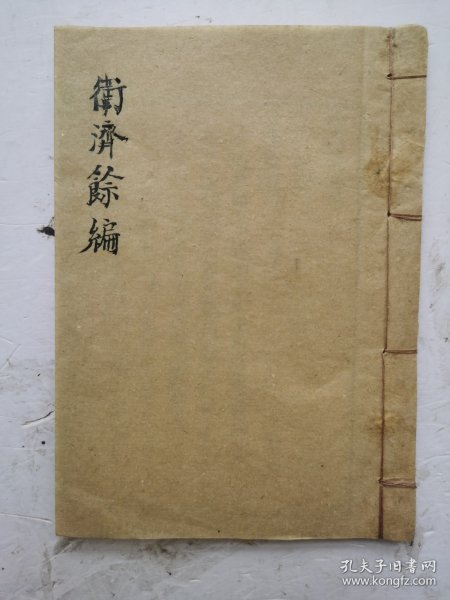 衛濟餘編
孔夫子旧书网
www.kongfz.com